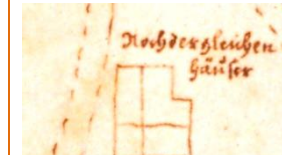 Noch dergleichen
Häuser